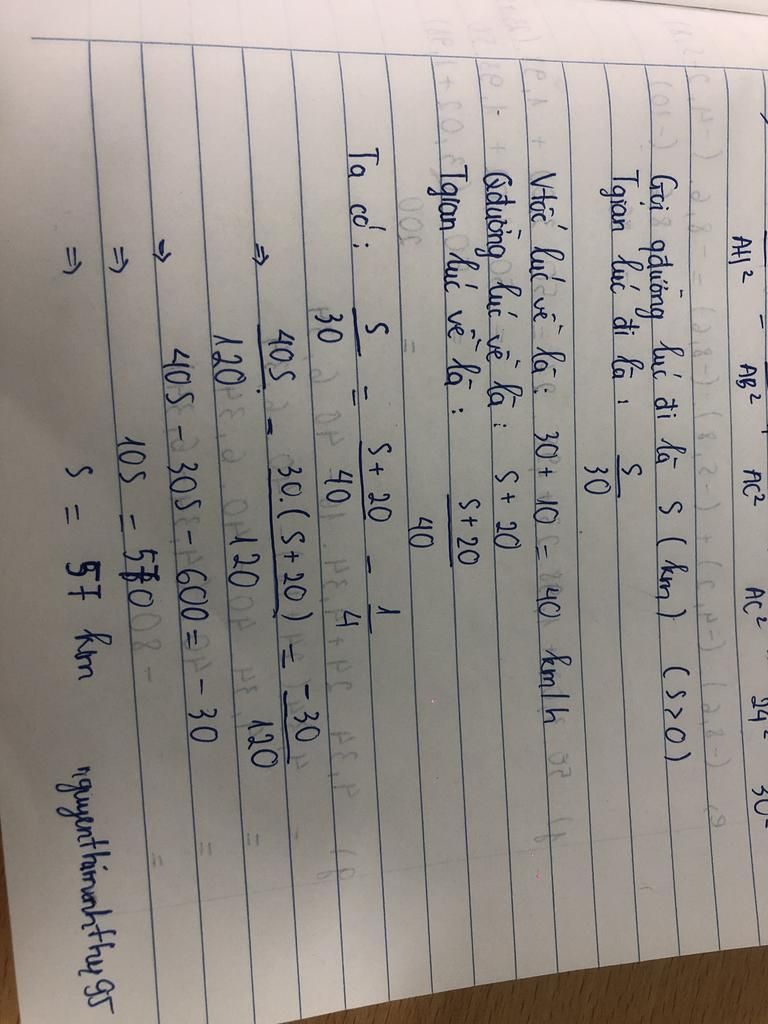 AH² AB² AC² AC² 24² 30²
Gọi qđường lúc đi là S (km) (S>0)
Tgian lúc đi là: S/30
Vtốc lúc về là: 30 + 10 = 40 km/h
Qđường lúc về là: S + 20
Tgian lúc về là: (S+20)/40
Ta có: S/30 - (S+20)/40 = 1/4
⇒ 40S/120 - 30.(S+20)/120 = -30/120
⇒ 40S - 30S - 600 = -30
⇒ 10S = 570
⇒ S = 57 km
nguyenthiminhthuy95